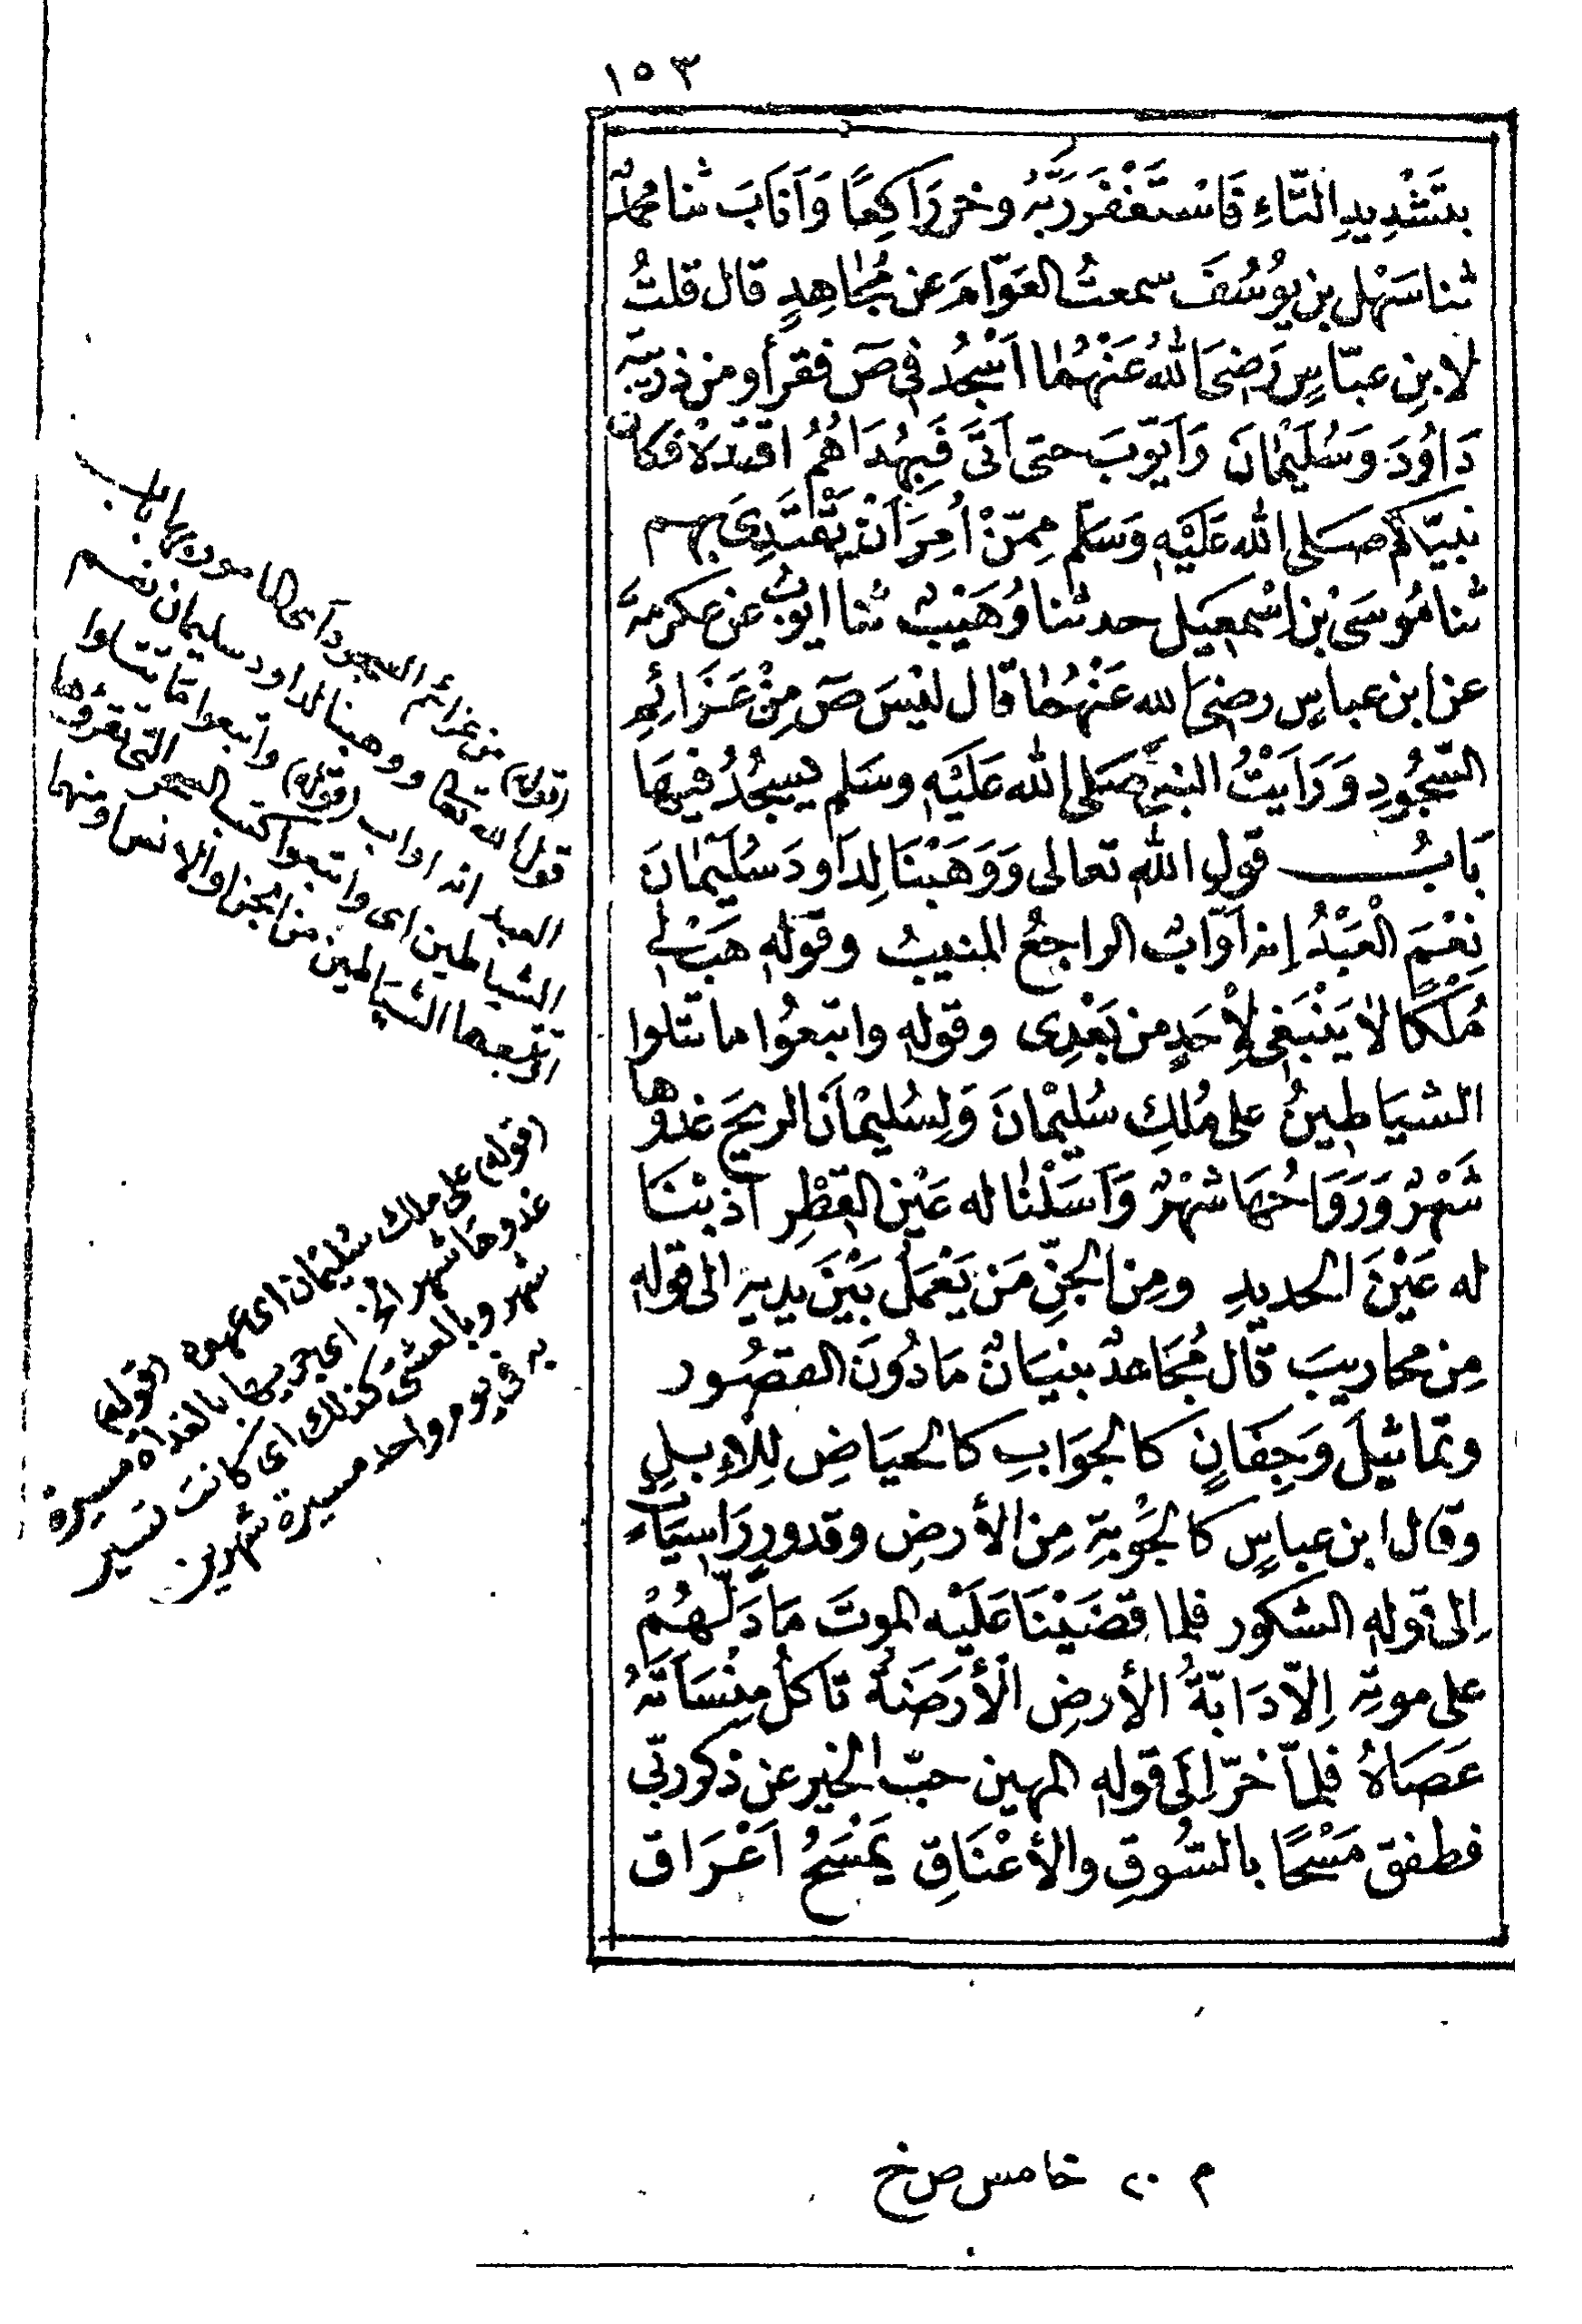 ١٥٣
بتَشْدِيدِ التّاءِ فَاسْتَغْفَرَ رَبَّهُ وخر رَاكِعًا وَاَنَابَ ثنا محمدٌ
ثنا سَهْل بن يوُسُفَ سمعتُ العَوّامَ عن مُجٰاهِدٍ قال قلتُ
لابنِ عبّاسٍ رَضِىَ اللهُ عَنْهُمٰا اَسْجُدُ فِى صۤ فقرأ ومن ذريّتِه
دَاوُدَ وَسُلَيْمٰانَ وَاَيّوُبَ حتى اَتَى فَبِهُدَاهُمُ اقتدهْ فكان
نبيّكم صَلى الله عَلَيْهِ وَسَلّم مِمّنْ اُمِرَ اَنْ يَقْتَدِىَ بهم
ثنا مُوسَى بْن اِسْمٰعِيَل حدثنا وُهَيْبٌ ثنا ايوبُ عن عكرمةَ
عن ابن عباسٍ رضِىَ الله عَنْهُمٰا قال ليْسَ صۤ مِنْ عَزَائِمِ
السّجُودِ وَرَاَيْتُ النبِىَّ صَلى الله عَلَيْهِ وسَلم يسجُدُ فيهَا
بَابُ قولِ اللهِ تعالى وَوَهَبْنَا لِدَاودَ سُلَيْمٰانَ
نِعْمَ الْعَبْدُ اِنه اَوّابٌ الراجعُ المنيبُ وقولِهِ هَبْ لِى
مُلْكًا لا يَنْبَغِى لِأَحَدٍ من بَعْدِى وقولِهِ واتبعُوا ما تتلوا
الشيَاطِينُ على مُلكِ سُليْمٰانَ وَلِسُليْمٰانَ الريحَ غدوها
شَهْرٌ وَرَوَاحُهَا شهْرٌ وَاَسَلْنٰا له عَيْن القِطْرِ اَذبْنَا
له عَيْنَ الحديدِ ومِنَ الجِنِّ مَن يَعْمَلُ بَيْنَ يديهِ الى قولِهِ
مِن محاريبَ قال مُجَاهدٌ بنيَانٌ مَا دُونَ القصُور
وتماثيلَ وَجِفَانٍ كالجَوَابِ كالحيَاضِ لِلْاءِبلِ
وقال ابن عباسٍ كالجَوْبَةِ مِنَ الأَرضِ وقدورٍ رَاسِيَاتٍ
اِلى قولِهِ الشكور فلما قضَيْنَا عَلَيْه الموتَ مَا دَلّهُمْ
على موتِهِ اِلاّ دَابّةُ الأرضِ الأَرَضَةُ تاكلُ مِنْسَاَتَهُ
عَصَاهُ فلمّا خرّ اِلَى قولِهِ المهين حبّ الخير عن ذكر ربّى
فطفق مَسْحًا بالسُّوقِ والأعْنَاقِ يَمْسَحُ اَعْرَاق
(قوله) من عزائم السجود اى المامور بها باب
قول الله تعالى ووهبنا لداود سليمان نعم
العبد انه اواب (قوله) واتبعوا ما تتلوا
الشياطين اى واتبعوا كتب السحر التى تقرؤها
اوتتبعها الشياطين من الجن او الانس او منهما
(قوله) على ملك سُليْمٰان اى عهده (قوله)
غدوها شهر الخ اى جريها بالغداة مسيرة
شهر وبالعشىّ كذلك اى كانت تسير
به فى يوم واحد مسيرة شهرين
م ٢٠ خامس ص خ